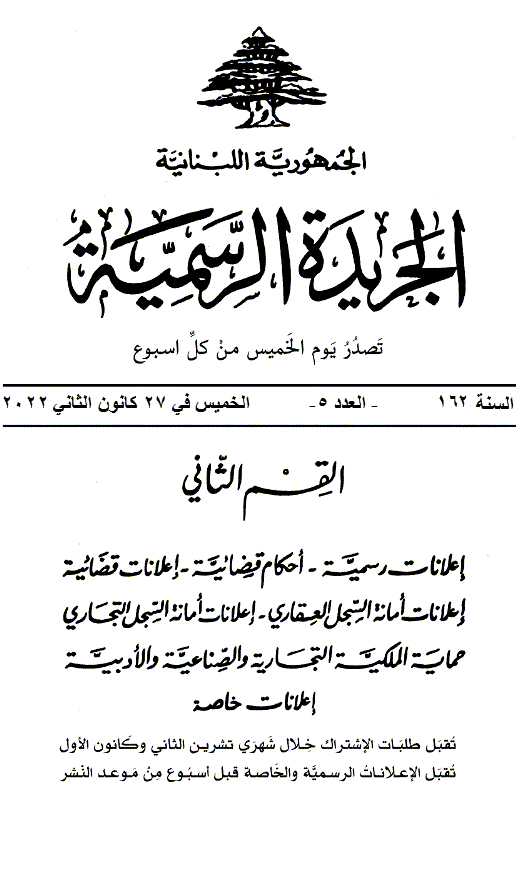 الجمهورية اللبنانية
الجريدة الرسمية
تصدر يوم الخميس من كل اسبوع
السنة ١٦٢ - العدد ٥ - الخميس في ٢٧ كانون الثاني ٢٠٢٢
القسم الثاني
إعلانات رسمية - أحكام قضائية - إعلانات قضائية
إعلانات أمانة السجل العقاري - إعلانات أمانة السجل التجاري
حماية الملكية التجارية والصناعية والأدبية
إعلانات خاصة
تقبل طلبات الإشتراك خلال شهري تشرين الثاني وكانون الأول
تقبل الإعلانات الرسمية والخاصة قبل أسبوع من موعد النشر